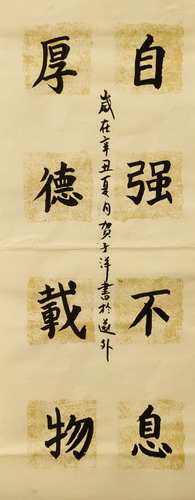 自强不息
厚德載物
歲在辛丑夏月賀子洋書於遼外